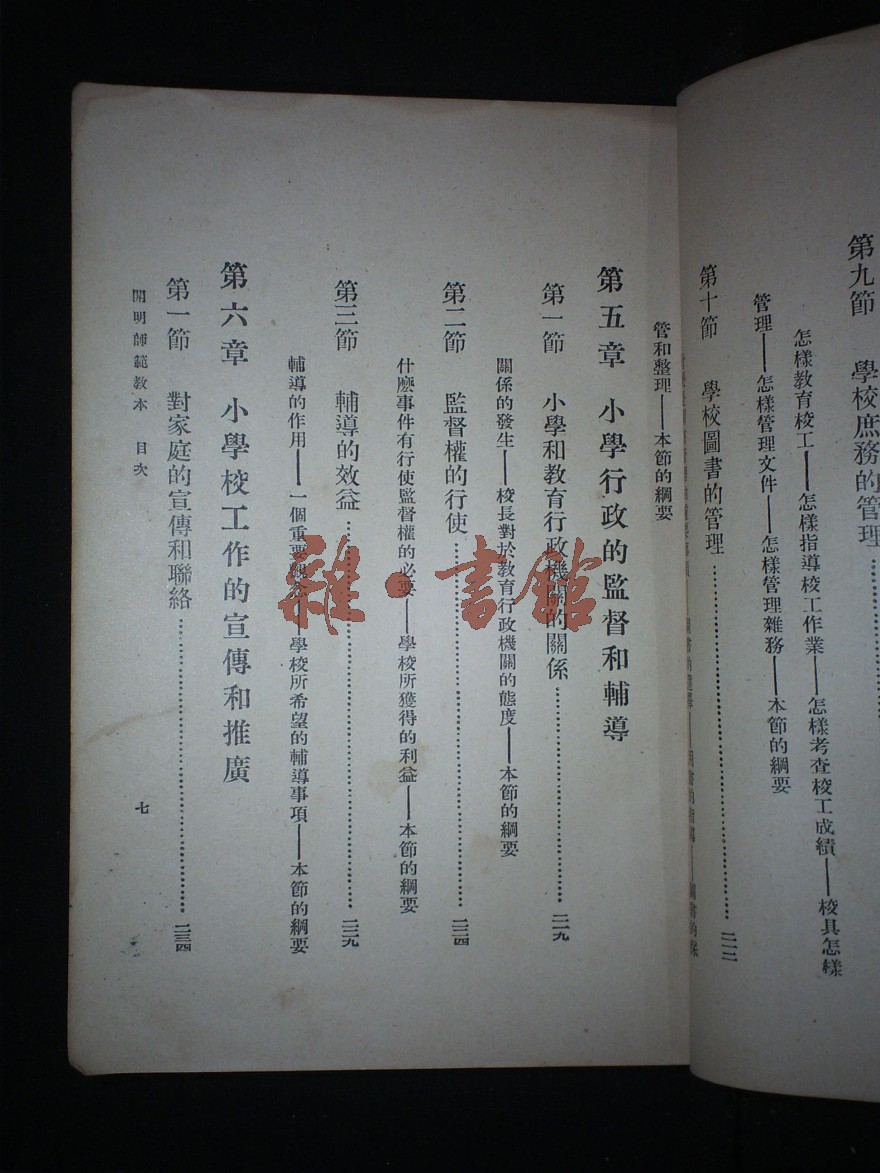 第九節　學校庶務的管理
怎樣教育校工——怎樣指導校工作業——怎樣考查校工成績——校具怎樣
管理——怎樣管理文件——怎樣管理雜務——本節的綱要
第十節　學校圖書的管理……二一二
管和整理——本節的綱要
第五章　小學行政的監督和輔導
第一節　小學和教育行政機關的關係……二一九
關係的發生——校長對於教育行政機關的態度——本節的綱要
第二節　監督權的行使……二二四
什麼事件有行使監督權的必要——學校所獲得的利益——本節的綱要
第三節　輔導的效益……二二九
輔導的作用——一個重要觀念——學校所希望的輔導事項——本節的綱要
第六章　小學校工作的宣傳和推廣
第一節　對家庭的宣傳和聯絡……二三四
開明師範教本　目次
七
雜·書館